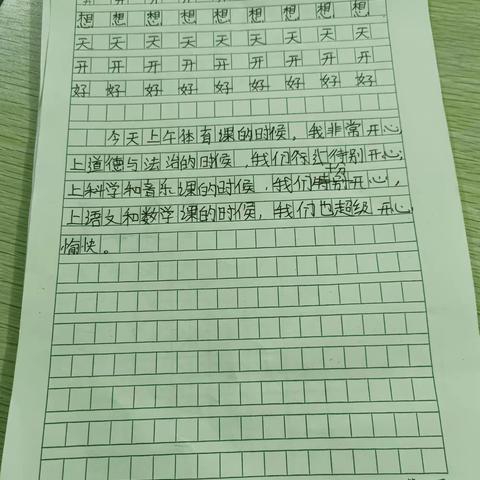 想 想 想 想 想 想 想 想
天 天 天 天 天 天 天 天
开 开 开 开 开 开 开 开
好 好 好 好 好 好 好 好
今天上午体育课的时候，我非常开心，
上道德与法治的时候，我们特别开心，
上科学和音乐课的时候，我们十分开心，
上语文和数学课的时候，我们也超级开心
愉快。